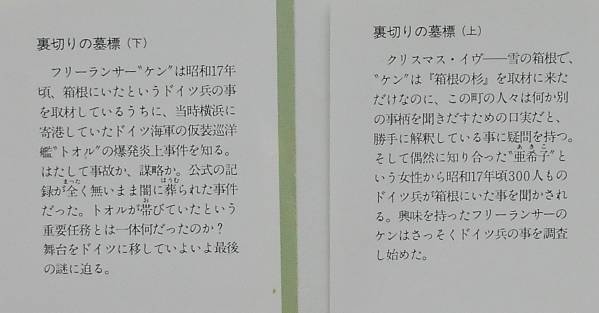 裏切りの墓標（下）
フリーランサー〝ケン〟は昭和17年
頃、箱根にいたというドイツ兵の事
を取材しているうちに、当時横浜に
寄港していたドイツ海軍の仮装巡洋
艦〝トオル〟の爆発炎上事件を知る。
はたして事故か、謀略か。公式の記
録が全く無いまま闇に葬られた事件
だった。トオルが帯びていたという
重要任務とは一体何だったのか？
舞台をドイツに移していよいよ最後
の謎に迫る。
裏切りの墓標（上）
クリスマス・イヴ――雪の箱根で、
〝ケン〟は『箱根の杉』を取材に来た
だけなのに、この町の人々は何か別
の事柄を聞きだすための口実だと、
勝手に解釈している事に疑問を持つ。
そして偶然に知り合った〝亜希子〟と
いう女性から昭和17年頃300人もの
ドイツ兵が箱根にいた事を聞かされ
る。興味を持ったフリーランサーの
ケンはさっそくドイツ兵の事を調査
し始めた。